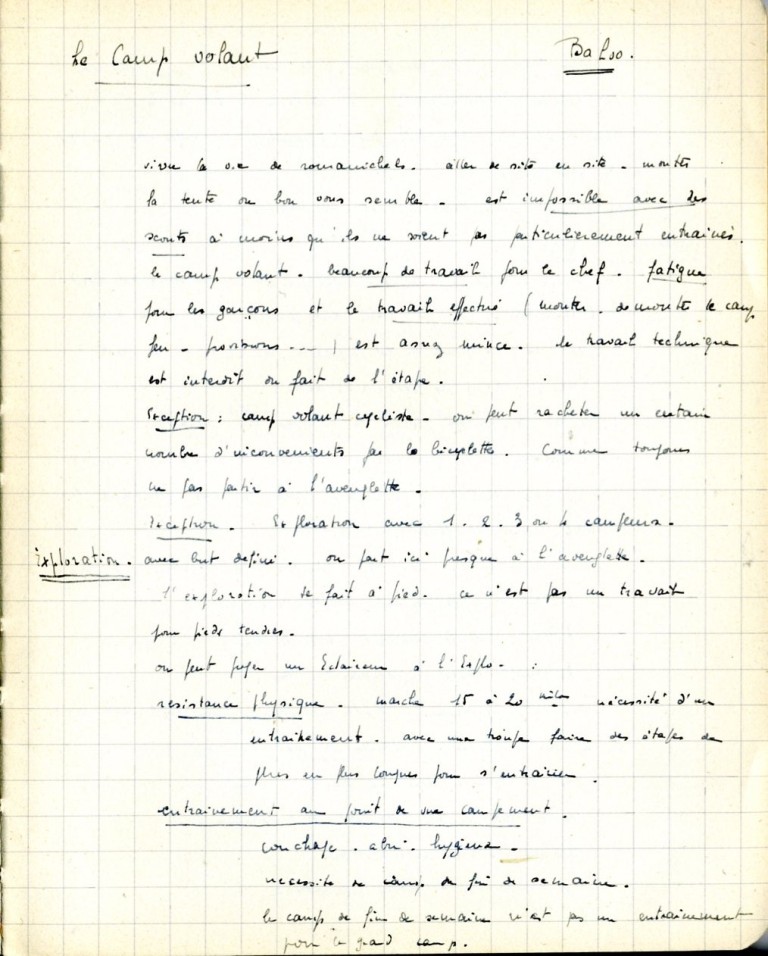 Le Camp volant
Baloo.
vivre la vie de romanichels. aller de site en site - monter
la tente ou bon vous semble - est impossible avec des
scouts à moins qu'ils ne soient pas particulièrement entrainés.
le camp volant. beaucoup de travail pour le chef. fatigue
pour les garçons et le travail effectué (monter. demonter le camp
feu - provisions ...) est assez mince. le travail technique
est interdit du fait de l'étape.
Exception : camp volant cycliste - on peut racheter un certain
nombre d'inconvenients par la bicyclette. Comme toujours
ne pas partir à l'aveuglette.
Exception. Exploration avec 1. 2. 3 ou 4 campeurs.
Exploration. avec but defini. on part ici presque à l'aveuglette.
l'exploration se fait à pied. ce n'est pas un travail
pour pieds tendres.
on peut juger un Eclaireur à l'Explo - :
resistance physique. marche 15 à 20 milles nécessité d'un
entrainement. avec une troupe faire des étapes de
plus en plus longues pour s'entrainer.
entrainement au point de vue campement.
couchage. abri. hygiene.
necessite de camp de fin de semaine.
le camp de fin de semaine n'est pas un entrainement
pour le grand camp.